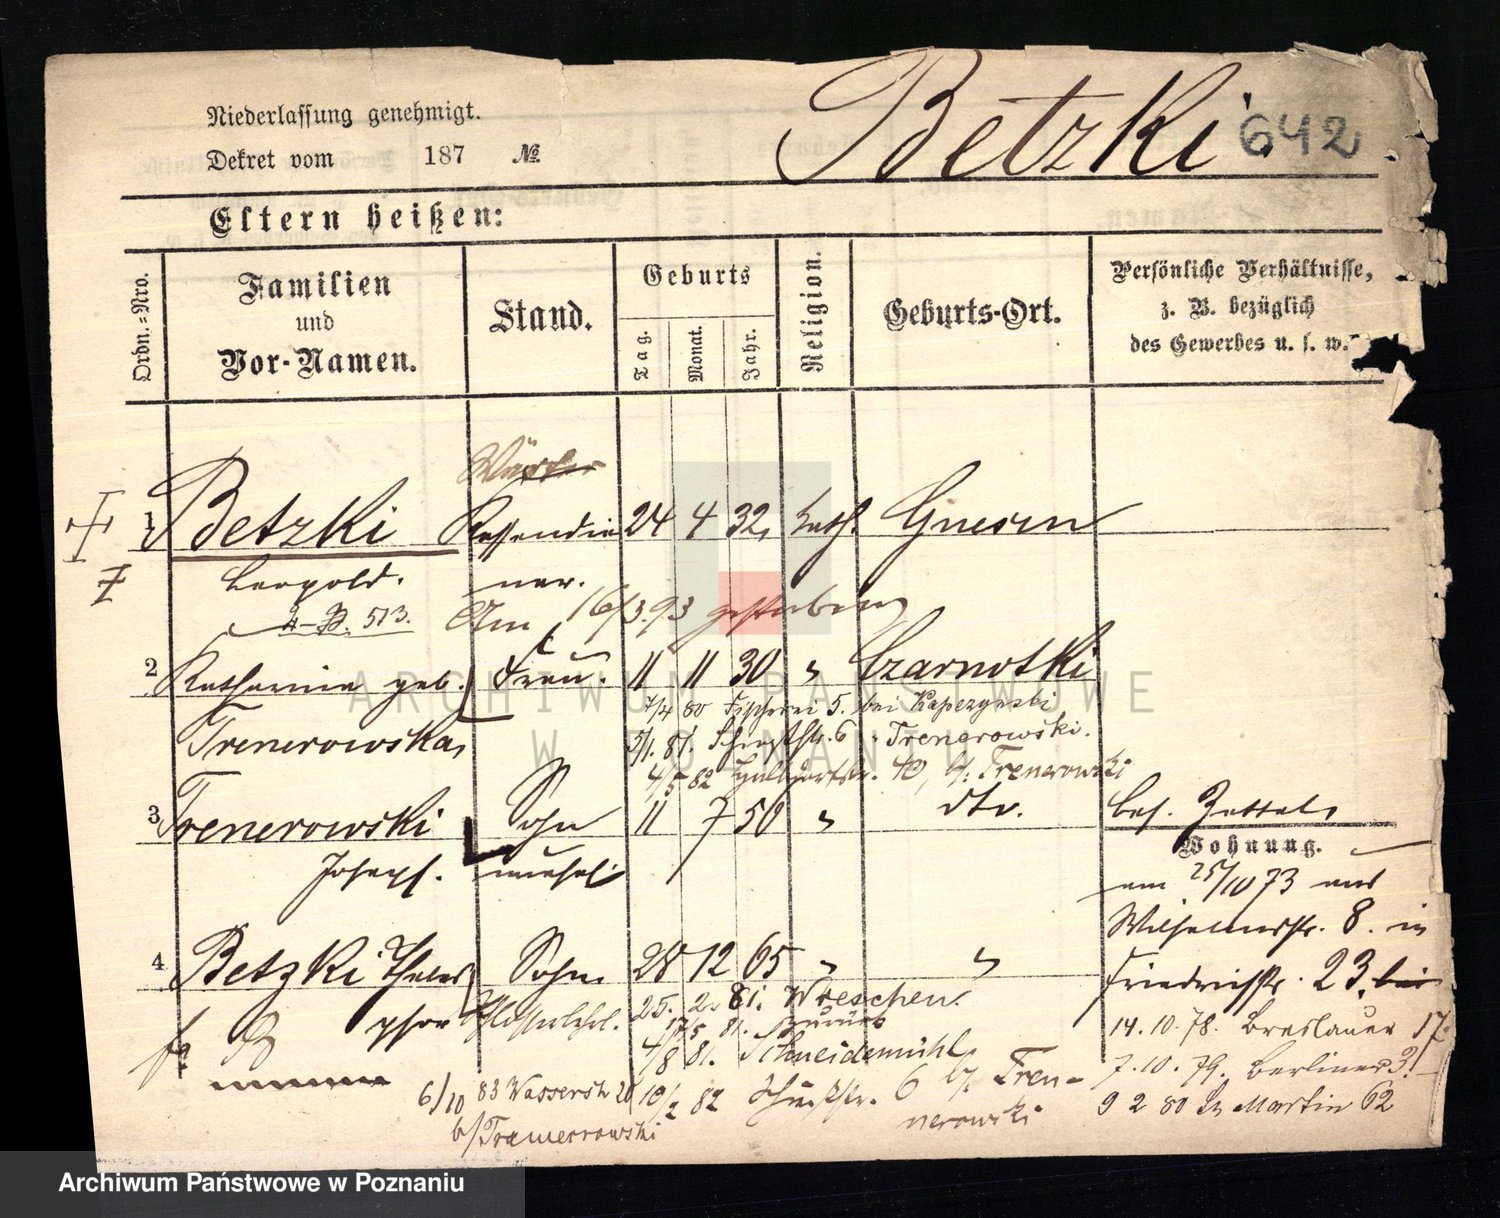 Niederlassung genehmigt.
Dekret vom 187 №
Betzki 642
Eltern heißen:
Ordn.-Nro.
Familien
und
Vor-Namen.
Stand.
Geburts
Tag.
Monat.
Jahr.
Religion.
Geburts-Ort.
Persönliche Verhältnisse,
z. B. bezüglich
des Gewerbes u. s. w.
Wärter
1 Betzki Kassendie 24 4 32 kath. Gnesen
Leopold. ner.
513. Am 16/3.93 gestorben
2 Katharina geb. Frau. 11 11 30 " Czarnotki
7/4 80 Fischerei 5. bei Kapczynski
Trenerowska, 5/1. 81. Schützstr. 6 " Trenerowski.
4/5 82 40, b/. Trenerowski
3 Trenerowski Sohn 11 7 50 " dto.
Joseph. unehel.
bes. Zettel
Wohnung.
am 25/10 73 aus
Wilhelmstr. 8. in
Friedrichstr. 23. bei
14. 10. 78. Breslauer 17.
7. 10. 79. Berliner 31
9 2 80 St Martin 62
4 Betzki Sohn 28 12 65 " "
phor Schlosserlehrl. 25. 2. 81. Wreschen.
17/5 81. zurück
4/8 81. Schneidemühl
6/10 83 Wasserstr 20 10/2 82 Schützstr. 6 b/. Tren-
nerowski
b/Tramerrowski
ARCHIWUM PAŃSTWOWE
W POZNANIU
Archiwum Państwowe w Poznaniu